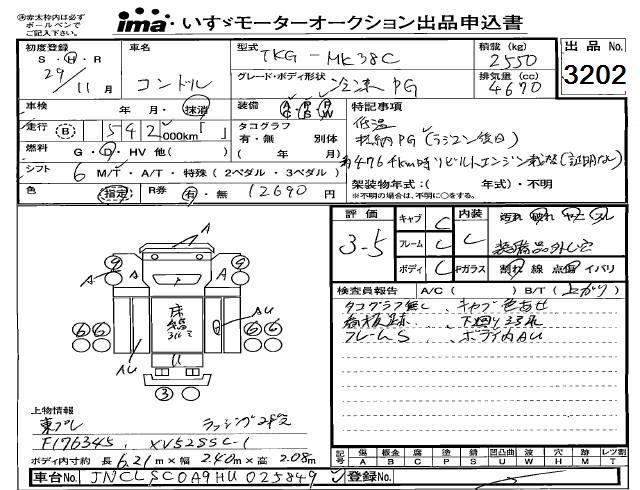 ※赤太枠内は必ず
ボールペンで
ご記入下さい。
ima いすゞモーターオークション出品申込書
初度登録 S・H・R 29/11月
車名 コンドル
型式 TKG-MK38C
グレード・ボディ形状 冷凍 PG
積載(kg) 2550
排気量(cc) 4670
出品No. 3202
車検 年・月・抹消
装備 AC PS PW
特記事項
低温
格納PG(ラジコン後日)
走行 (B) 542,000km「 」
タコグラフ 有・無 別体
( 年/ 月)
燃料 G・D・HV 他( )
約476千km時リビルトエンジン載

せ(証明なし)
シフト 6 M/T・A/T・特殊(2ペダル・3ペダル)
架装物年式:( 年式)・不明
※不明の場合は、不明に○をする。
色 (指定) R券 有・無 12690円
評価 3-5
キャブ C
フレーム C
ボディ C
内装 C
Fガラス 割れ 線 点傷 イバリ
汚れ 破れ ヤニ スレ
装備品外し穴
検査員報告 A/C( ) B/T(上がり)
タコグラフ無し、キャブ色あせ
看板跡、下回りサビ
フレームS、ボディ内AU
A
A
AU
AU
床
9 9
6 6 6 6
3
U
上物情報
東プレ ラッシング2段
F176345, XV52SSC-1
ボディ内寸約 長 6.21m×幅 2.40m×高 2.08m
記号 傷A 板金B 腐C 塗P 錆S 凹凸曲U 波W 穴H 跡M レツ割T
車台No. JNCLSC0A9HU025849
登録No.